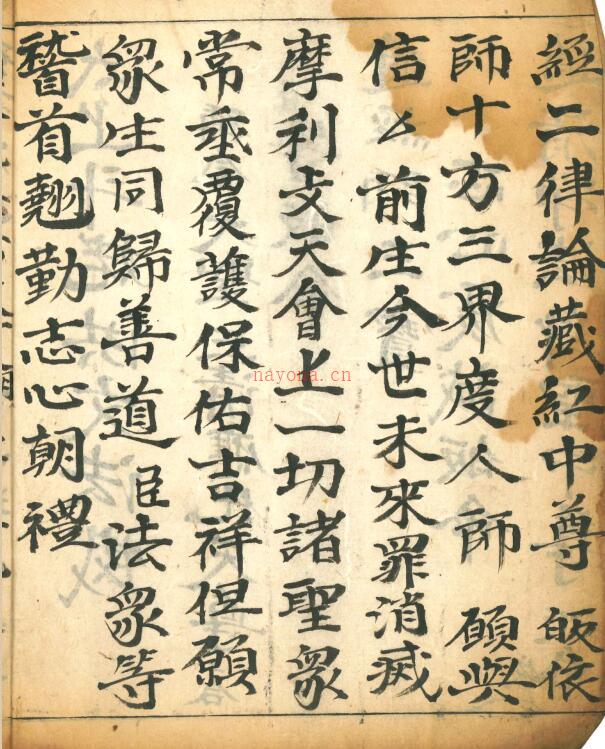 經二律論藏紅中尊 皈依
師十方三界度人師 願與
信〻前生今世未來罪消滅
摩利攴天會上一切諸聖衆
常垂覆護保佑吉祥但願
衆生同歸善道臣法衆等
稽首翹勤志心朝禮
nayona.cn